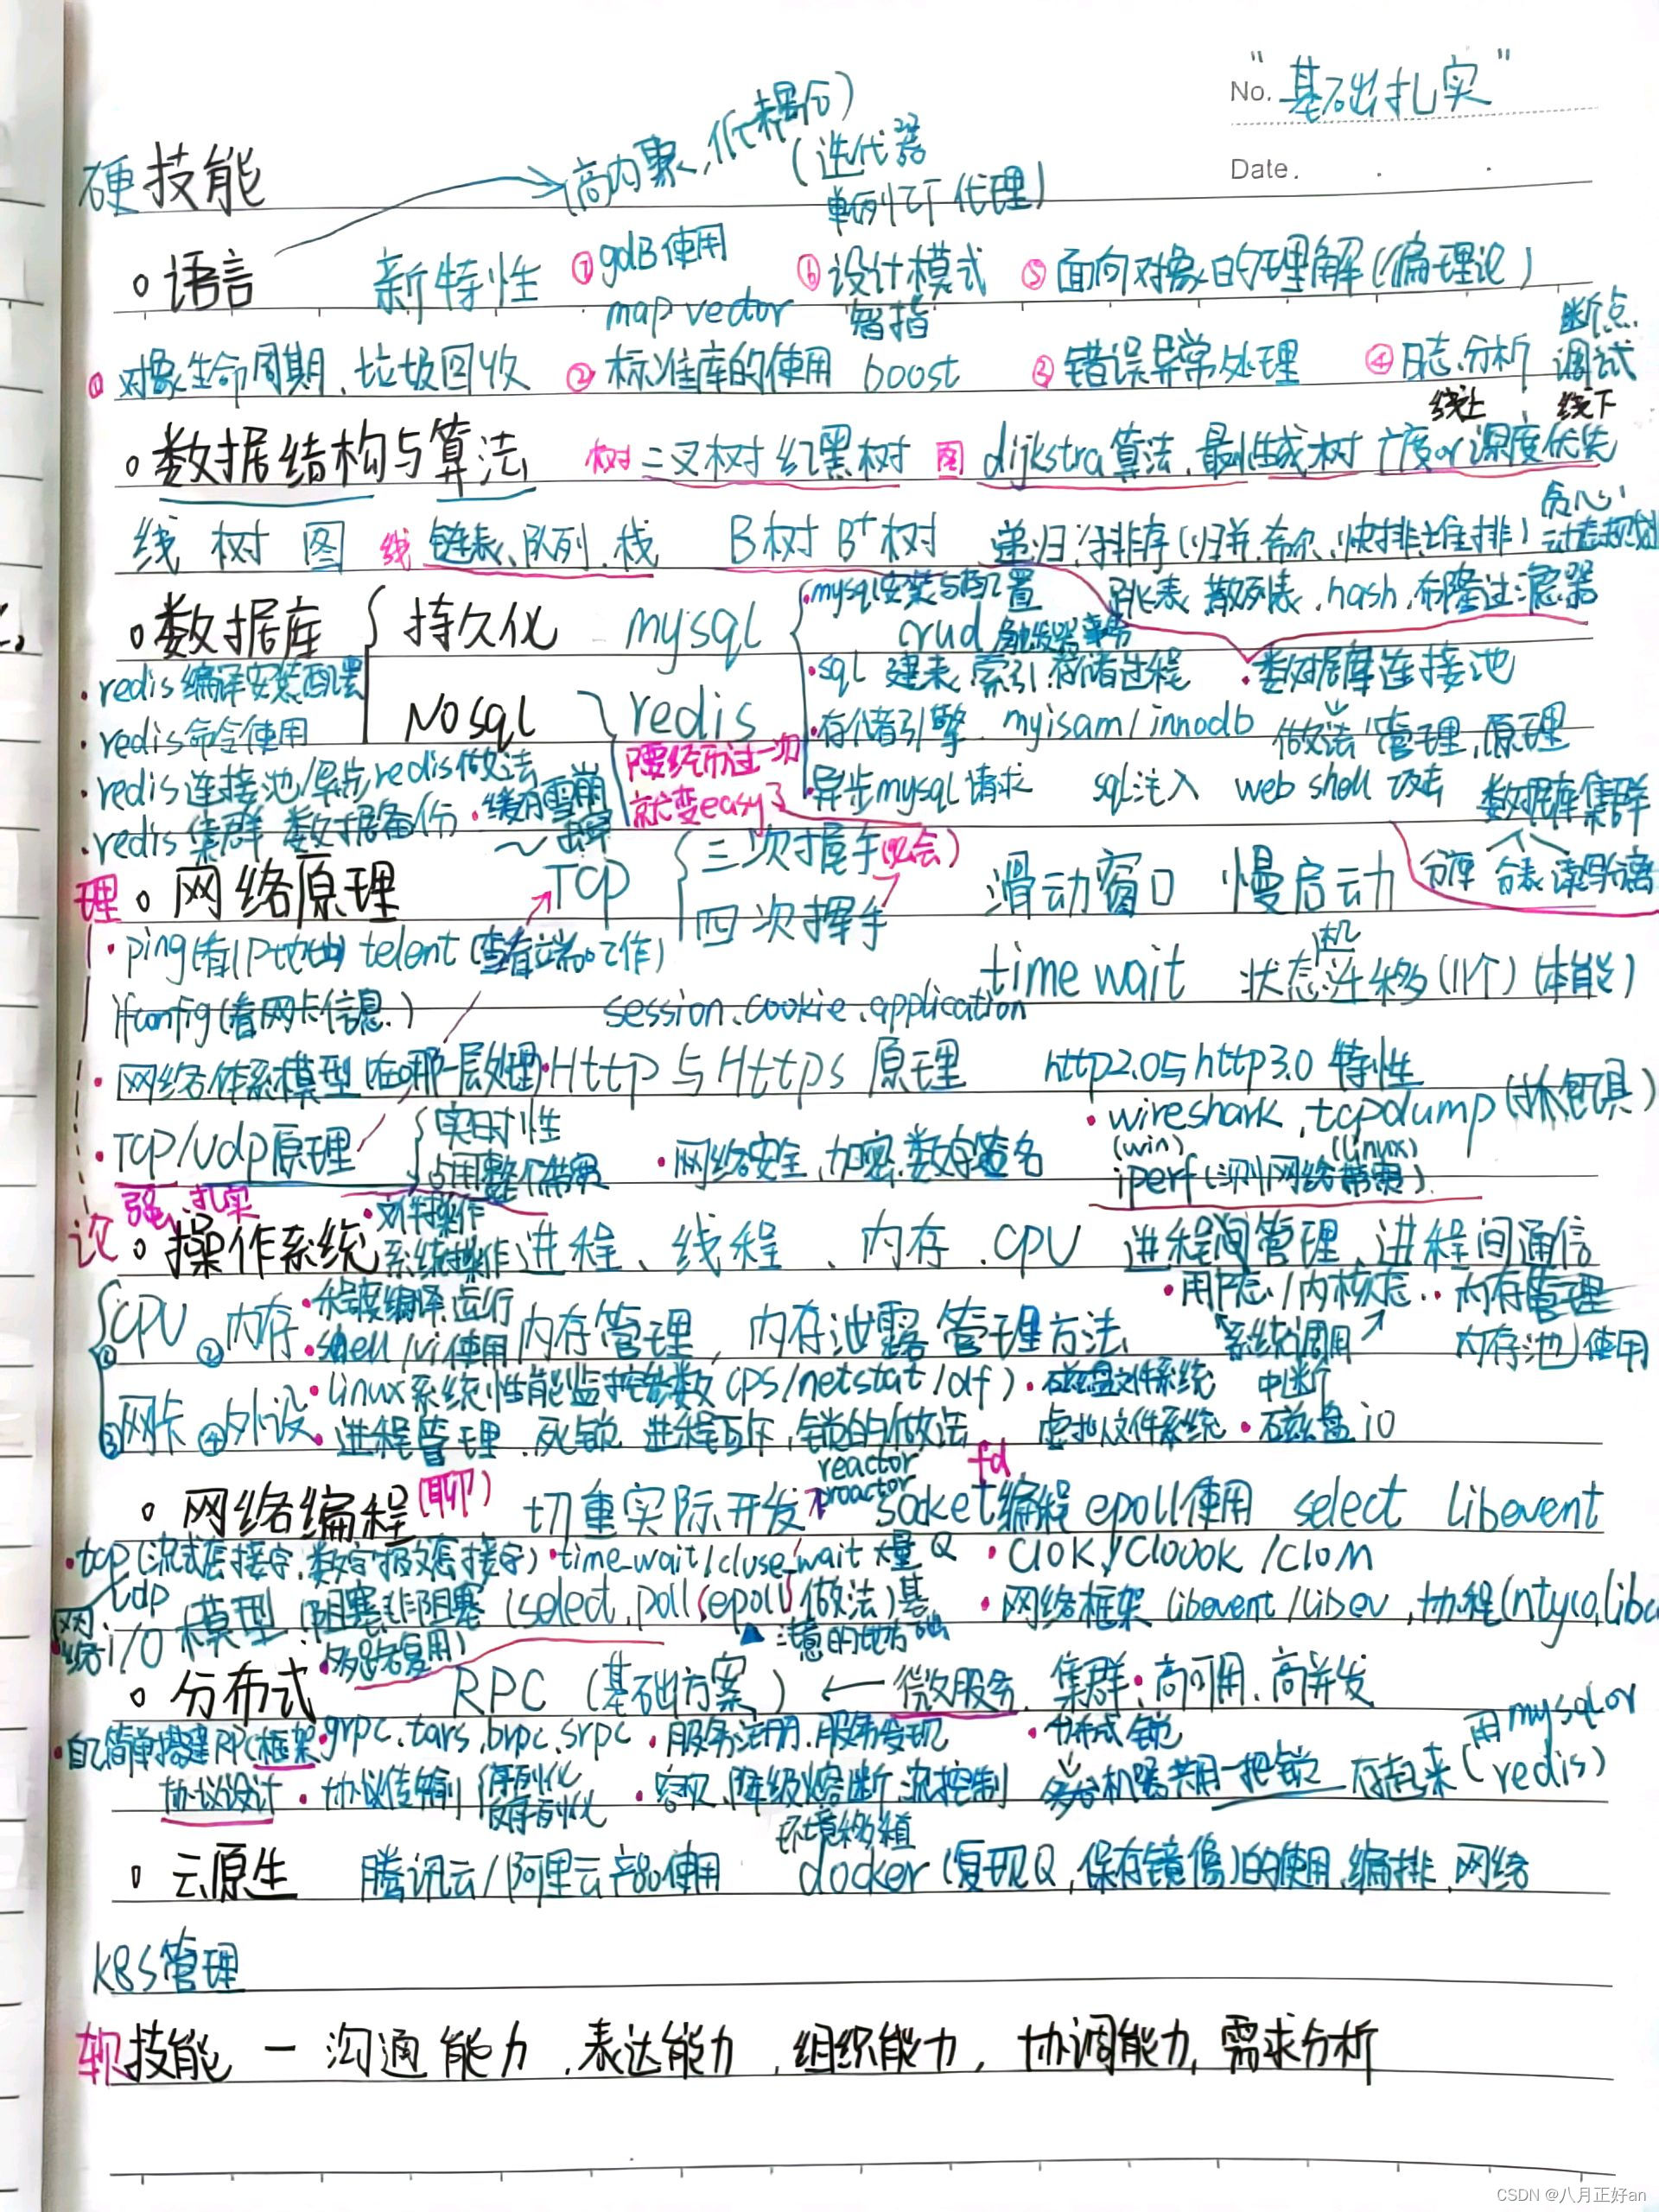 No. "基础扎实"
Date.
硬技能
(高内聚,低耦合)
(迭代器
单例 代理)
语言 新特性 ⑦ gdB使用 ⑥ 设计模式 ⑤ 面向对象的理解(偏理论)
map vector 智指 断点
① 对象生命周期、垃圾回收 ② 标准库的使用 boost ③ 错误异常处理 ④ 日志分析 调试
线上 线下
数据结构与算法 树 二叉树 红黑树 图 dijkstra算法、最小生成树 广度or深度优先
贪心
线 树 图 线 链表、队列、栈 B树 B+树 递归、排序(归并、希尔、快排、堆排) 动态规划
跳表 散列表、hash、布隆过滤器
数据库 持久化 mysql
·mysql安装与配置
crud 触发器 事务
·redis编译安装配置
·sql 建表、索引、存储过程 ·数据库连接池
NOsql redis
·redis命令使用
·存储引擎 myisam/innodb 做法 管理、原理
·redis连接池/异步redis做法
只要经历过一次
就变easy了
·异步mysql请求 sql注入 web shell 攻击 数据库集群
·redis集群 数据备份 ·缓存雪崩
分库 分表 读写分离
理
网络原理 TCP 三次握手(必会)
四次挥手
滑动窗口 慢启动
·ping(看IP地址) telent(查看端口工作)
time wait 状态机迁移(11个)(本能)
ifconfig(看网卡信息) session、cookie、application
·网络体系模型(在哪一层处理) ·Http与Https原理 http2.0与http3.0 特性
·TCP/Udp原理 实时性
占用整个带宽
·网络安全、加密、数字签名
·wireshark、tcpdump(抓包工具)
(win) (linux)
iperf(测网络带宽)
强、扎实
论
操作系统 ·文件操作
系统操作
进程、线程、内存、CPU 进程间管理、进程间通信
① CPU ② 内存 ·程度编译运行
·shell/vi使用
内存管理,内存泄露管理方法
·用户态/内核态 ·内存管理
系统调用 内存池 使用
③ 网卡 ④ 外设
·linux系统性能监控参数(ps/netstat/df) ·磁盘文件系统 中断
·进程管理、死锁、进程互斥,锁的做法 虚拟文件系统 ·磁盘io
网络编程(聊) 切重实际开发
reactor
proactor
fd
socket编程 epoll使用 select libevent
·tcp(流式套接字、数字报文套接字) ·time_wait/cluse_wait大量Q ·C10K/C1000K/C10M
udp
·网络i/O模型(阻塞非阻塞(select,poll,epoll做法)基
·网络框架 libevent/libev,协程(ntyco,libco
·多路复用) 注意的地方
分布式 RPC(基础方案) ← 微服务、集群·高可用、高并发
·自己简单搭建RPC框架 ·grpc、tars、brpc、srpc ·服务注册、服务发现 ·分布式锁
用mysql or
协议设计 ·协议传输 序列化
反序列化
·容灾、降级熔断、流控制 多台机器共用一把锁 存起来(redis)
环境移植
云原生 腾讯云/阿里云产品使用 docker(复现Q,保存镜像)的使用、编排、网络
K8S管理
软技能 — 沟通能力,表达能力,组织能力,协调能力,需求分析
CSDN @八月正好an